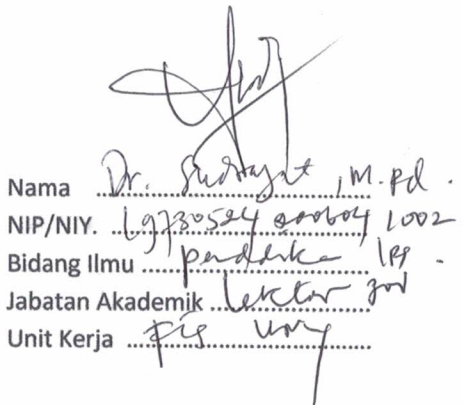 Nama Dr. Sudrajat, M.Pd.
NIP/NIY. 19730524 200604 1002
Bidang Ilmu IPS
Jabatan Akademik Lektor
Unit Kerja FIS UNY